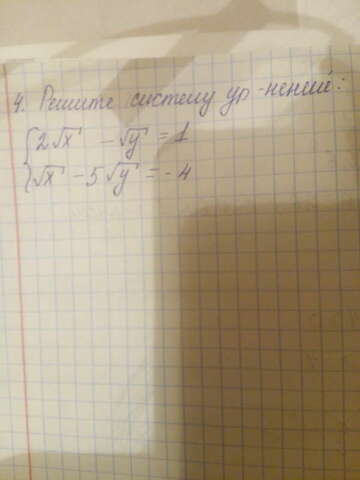 4. Решите систему ур-нений:
{2√x - √y = 1
{√x - 5√y = -4